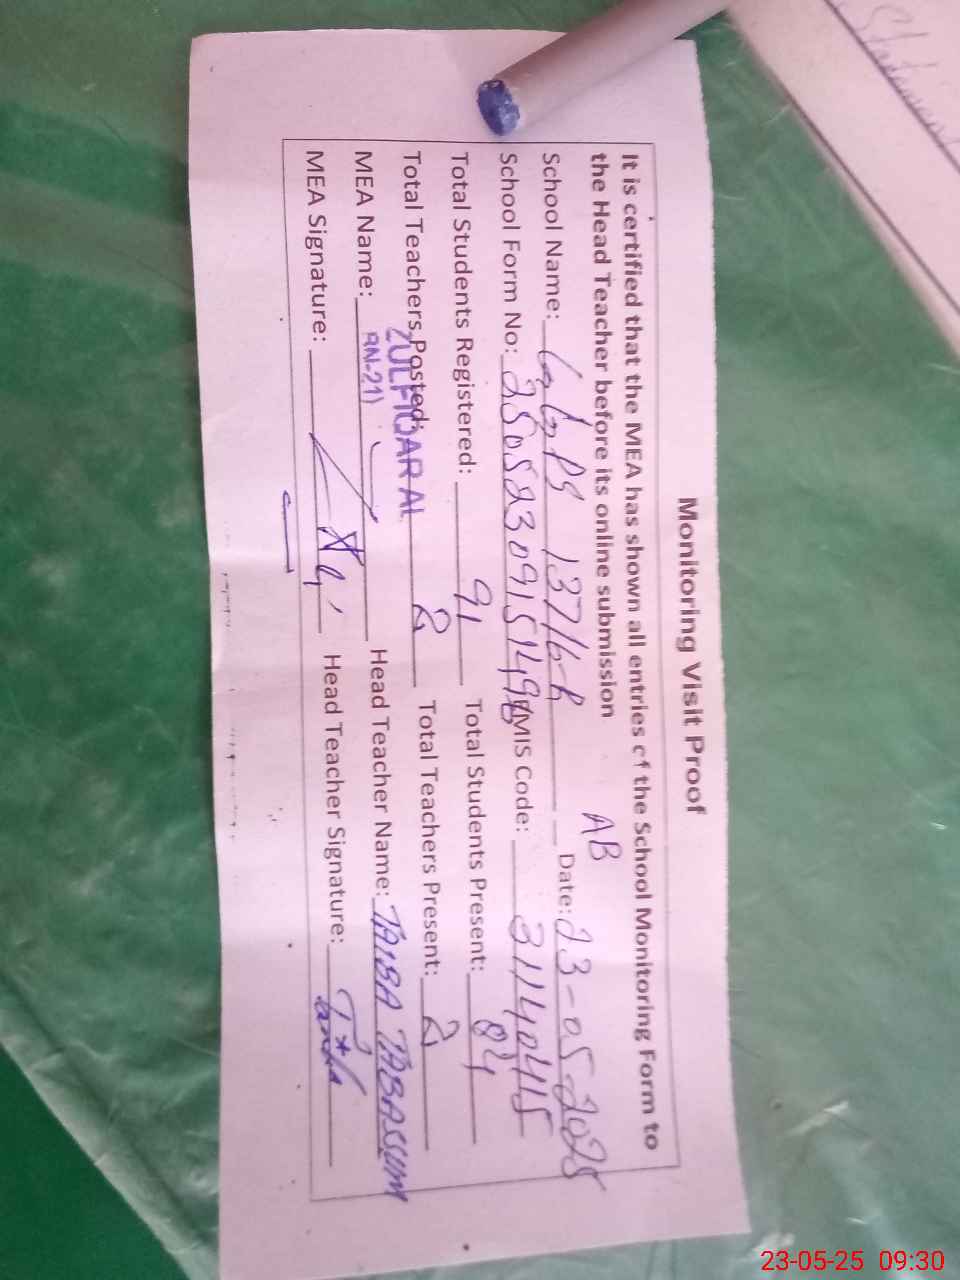 Monitoring Visit Proof
It is certified that the MEA has shown all entries of the School Monitoring Form to
the Head Teacher before its online submission
AB
School Name: GGPS 137/6-R Date: 23-05-2025
School Form No: 25052309151498 EMIS Code: 31140445
Total Students Registered: 91 Total Students Present: 84
Total Teachers Posted: 2 Total Teachers Present: 2
ZULFIQAR AL
MEA Name: Head Teacher Name: TAIBA TABASSUM
BN-21)
MEA Signature: Head Teacher Signature:
Statement
23-05-25 09:30